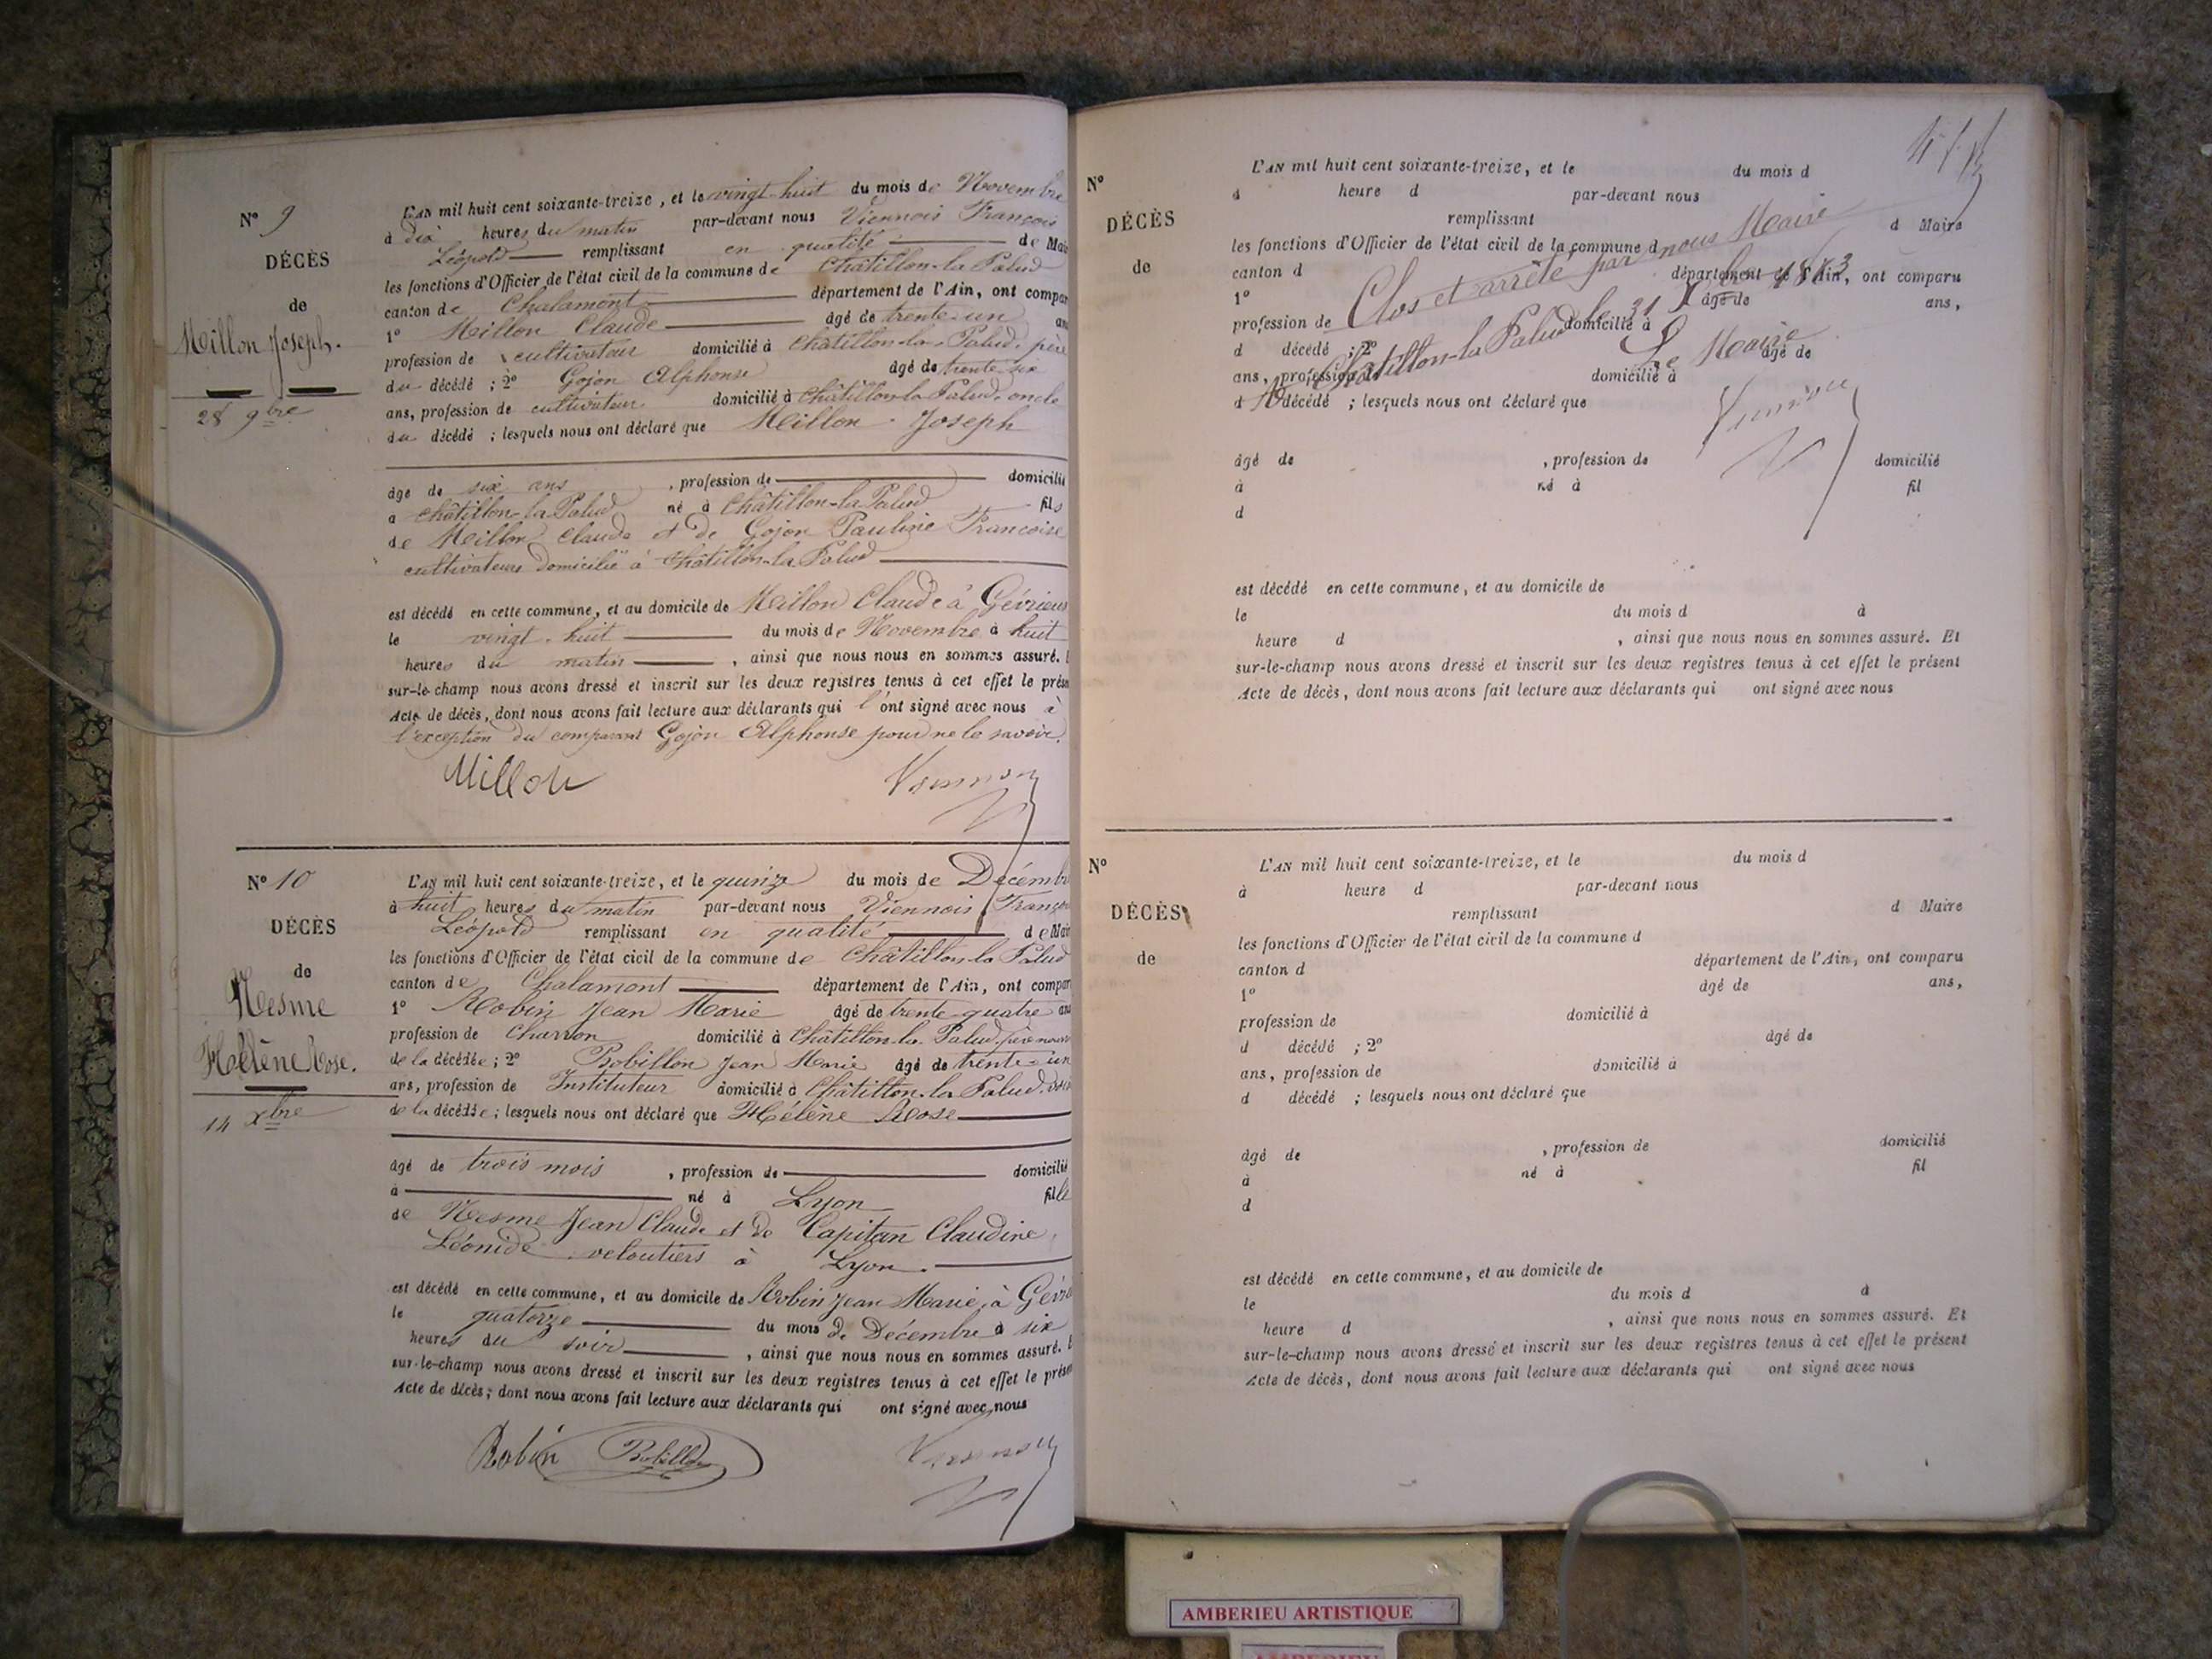 N° 9
DÉCÈS
de
Millon Joseph.
28 9bre
L'AN mil huit cent soixante-treize, et le vingt-huit du mois de Novembre
à dix heures du matin par-devant nous Viennois François
Léopold remplissant en qualité de Mai
les fonctions d'Officier de l'état civil de la commune de Châtillon-la Palud
canton de Chalamont département de l'Ain, ont compar
1° Millon Claude âgé de trente-un an
profession de cultivateur domicilié à Châtillon-la-Palud, père
du décédé ; 2° Gojon Alphonse âgé de trente-six
ans, profession de cultivateur domicilié à Châtillon-la Palud, oncle
du décédé ; lesquels nous ont déclaré que Millon Joseph
âgé de six ans , profession de domicilié
à Châtillon-la Palud né à Châtillon-la Palud fils
de Millon Claude et de Gojon Pauline Françoise
cultivateurs domicilié à Châtillon-la Palud
est décédé en cette commune, et au domicile de Millon Claude à Gévrieux
le vingt-huit du mois de Novembre à huit
heures du matin , ainsi que nous nous en sommes assuré.
sur-le-champ nous avons dressé et inscrit sur les deux registres tenus à cet effet le prése
Acte de décès, dont nous avons fait lecture aux déclarants qui l'ont signé avec nous à
l'exception du comparant Gojon Alphonse pour ne le savoir.
Millon
N° 10
DÉCÈS
de
Nesme
Hélène Rose.
14 Xbre
L'AN mil huit cent soixante-treize, et le quinze du mois de Décembr
à huit heures du matin par-devant nous Viennois Franço
Léopold remplissant en qualité de Mair
les fonctions d'Officier de l'état civil de la commune de Châtillon-la Palud
canton de Chalamont département de l'Ain, ont compar
1° Robin Jean Marie âgé de trente-quatre ans
profession de Charron domicilié à Châtillon-la Palud, père
de la décédée ; 2° Robillon Jean Marie âgé de trente-un
ans, profession de Instituteur domicilié à Châtillon-la Palud,
de la décédée ; lesquels nous ont déclaré que Hélène Rose
âgé de trois mois , profession de domicilié
à né à Lyon fille
de Nesme Jean Claude et de Capitan Claudine
Léonide veloutiers à Lyon.
est décédé en cette commune, et au domicile de Robin Jean Marie, à Gévri
le quatorze du mois de Décembre à six
heures du soir , ainsi que nous nous en sommes assuré.
sur-le-champ nous avons dressé et inscrit sur les deux registres tenus à cet effet le prése
Acte de décès, dont nous avons fait lecture aux déclarants qui ont signé avec nous
Robin Robillon
N°
DÉCÈS
de
L'AN mil huit cent soixante-treize, et le du mois d
à heure d par-devant nous
remplissant d Maire
les fonctions d'Officier de l'état civil de la commune d
canton d département de l'Ain, ont comparu
1° âgé de ans,
profession de domicilié à
d décédé ; 2° âgé de
ans, profession de domicilié à
d décédé ; lesquels nous ont déclaré que
Clos et arrêté par nous Maire
Châtillon-la Palud le 31 Xbre 1873
Le Maire
âgé de , profession de domicilié
à né à fil
d
est décédé en cette commune, et au domicile de
le du mois d à
heure d , ainsi que nous nous en sommes assuré. Et
sur-le-champ nous avons dressé et inscrit sur les deux registres tenus à cet effet le présent
Acte de décès, dont nous avons fait lecture aux déclarants qui ont signé avec nous
N°
DÉCÈS
de
L'AN mil huit cent soixante-treize, et le du mois d
à heure d par-devant nous
remplissant d Maire
les fonctions d'Officier de l'état civil de la commune d
canton d département de l'Ain, ont comparu
1° âgé de ans,
profession de domicilié à
d décédé ; 2° âgé de
ans, profession de domicilié à
d décédé ; lesquels nous ont déclaré que
âgé de , profession de domicilié
à né à fil
d
est décédé en cette commune, et au domicile de
le du mois d à
heure d , ainsi que nous nous en sommes assuré. Et
sur-le-champ nous avons dressé et inscrit sur les deux registres tenus à cet effet le présent
Acte de décès, dont nous avons fait lecture aux déclarants qui ont signé avec nous
AMBERIEU ARTISTIQUE
AMBERIEU